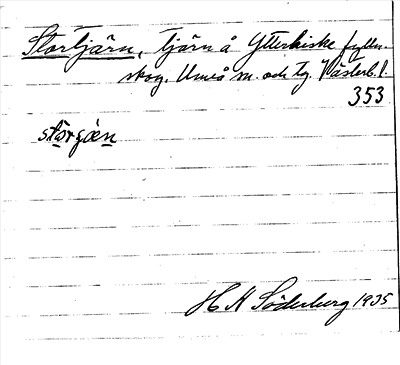 Stortjärn, tjärn å Ytterhiske hylle-
skog. Umeå sn. och tg. Västerb. l.
353
stȯrgæn
H K Söderberg 1935